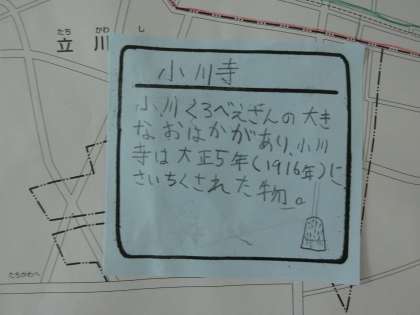 たち かわ し
立 川
小川寺
小川くろべえさんの大き
なおはかがあり、小川
寺は大正5年(1916年)に
さいちくされた物。
たちかわへ